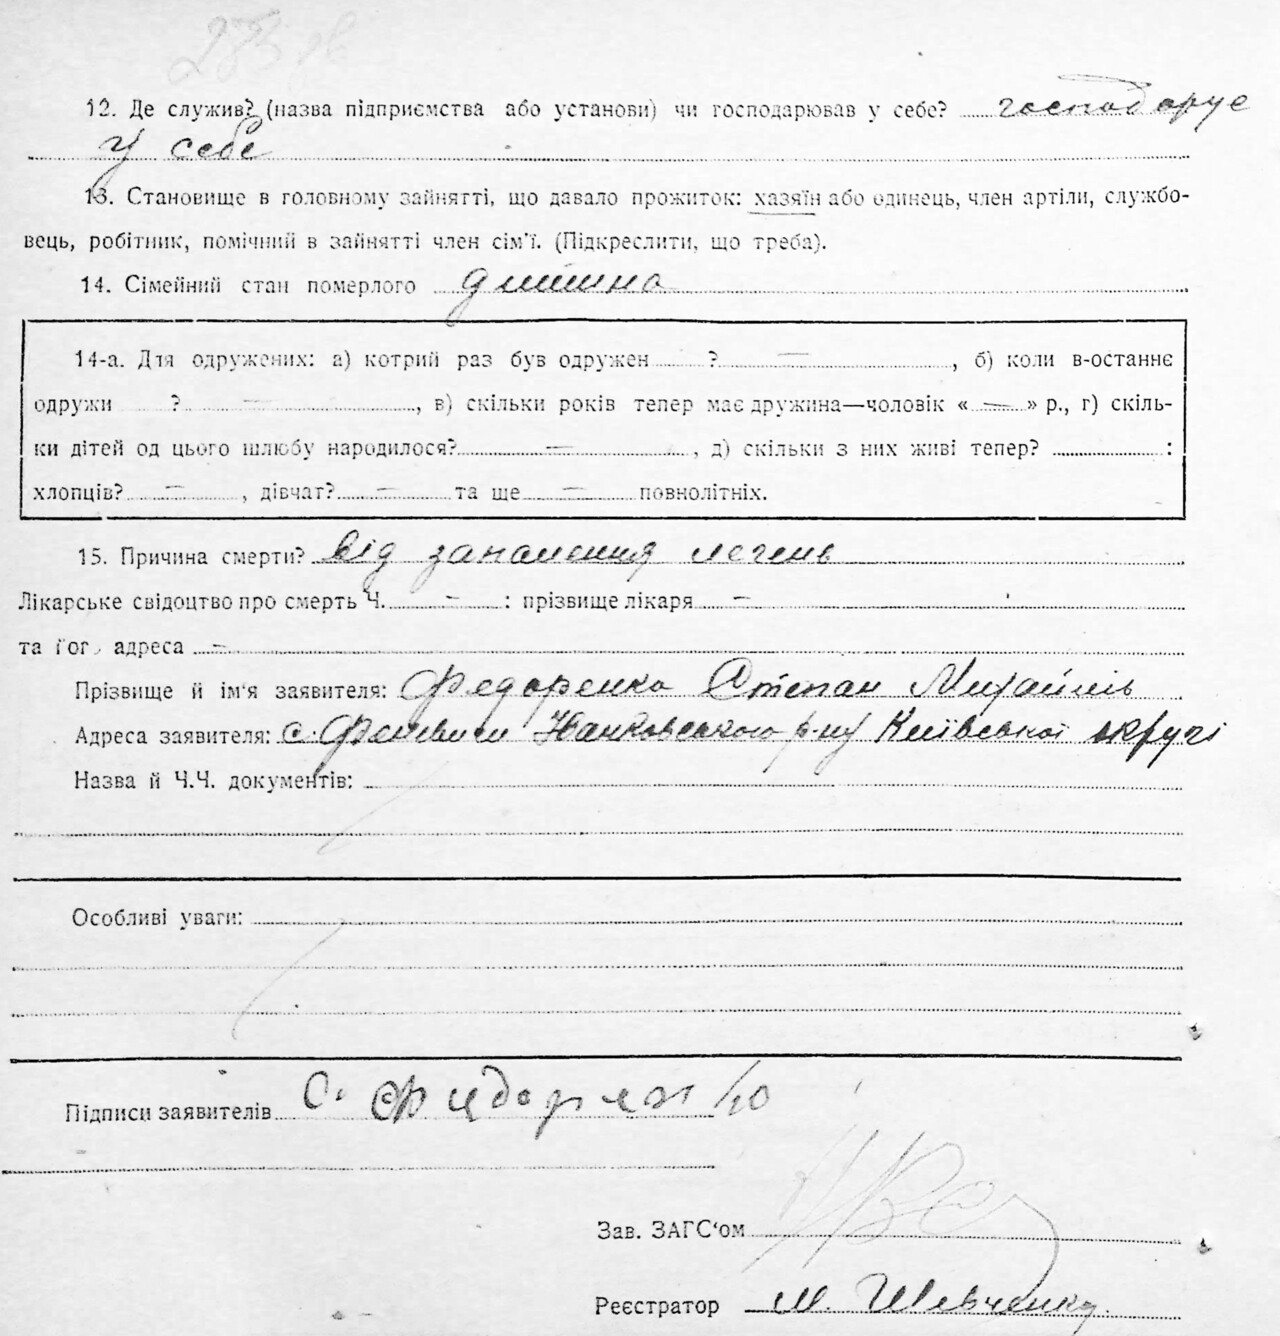 12. Де служив? (назва підприємства або установи) чи господарював у себе? господарує
у себе
13. Становище в головному зайнятті, що давало прожиток: хазяїн або одинець, член артіли, службо-
вець, робітник, помічний в зайнятті член сім'ї. (Підкреслити, що треба).
14. Сімейний стан померлого
14-а. Для одружених: а) котрий раз був одружен ? — , б) коли в-останнє
одружи ? — , в) скільки років тепер має дружина—чоловік « — » р., г) скіль-
ки дітей од цього шлюбу народилося? — , д) скільки з них живі тепер? :
хлопців? — , дівчат? — та ще — повнолітніх.
15. Причина смерти? Від запалення легень
Лікарське свідоцтво про смерть Ч. - : прізвище лікаря —
та його адреса —
Прізвище й ім'я заявителя: Федоренко Степан Михайлів
Адреса заявителя: с. р-ну Київської округі
Назва й Ч.Ч. документів:
Особливі уваги:
Підписи заявителів С.
Зав. ЗАГС'ом
Реєстратор М. Шевченко